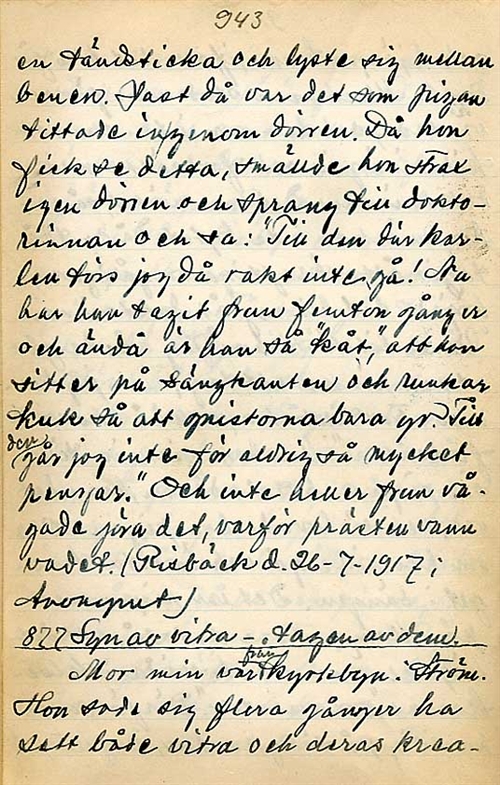 943
en tändsticka och lyste sig mellan
benen. Just då var det som pigan
tittade in genom dörren. Då hon
fick se detta, smällde hon strax
igen dörren och sprang till dokto-
rinnan och sa: "Till den där kar-
len törs jag då rakt inte gå! Nu
har han tagit fram femton gånger
och ändå är han så "kåt," att han
sitter på sängkanten och runkar
kuk så att gnistorna bara yr. Till
den går jag inte för aldrig så mycket
pengar." Och inte heller frun vå-
gade göra det, varför prästen vann
vadet. (Risbäck d. 26-7-1917;
Anonymt)
877 Syn av vitra - tagen av dem.
Mor min var från kyrkbyn i Ström.
Hon sade sig flera gånger ha
sett både vitra och deras krea-